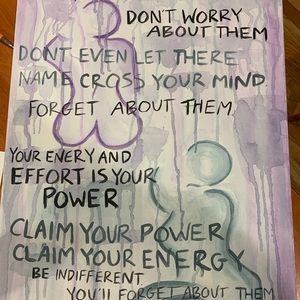 DONT WORRY
ABOUT THEM
DONT EVEN LET THERE
NAME CROSS YOUR MIND.
FORGET ABOUT THEM.
YOUR ENERY AND
EFFORT IS YOUR
POWER
CLAIM YOUR POWER
CLAIM YOUR ENERGY
BE INDIFFERENT
YOU'LL FORGET ABOUT THEM